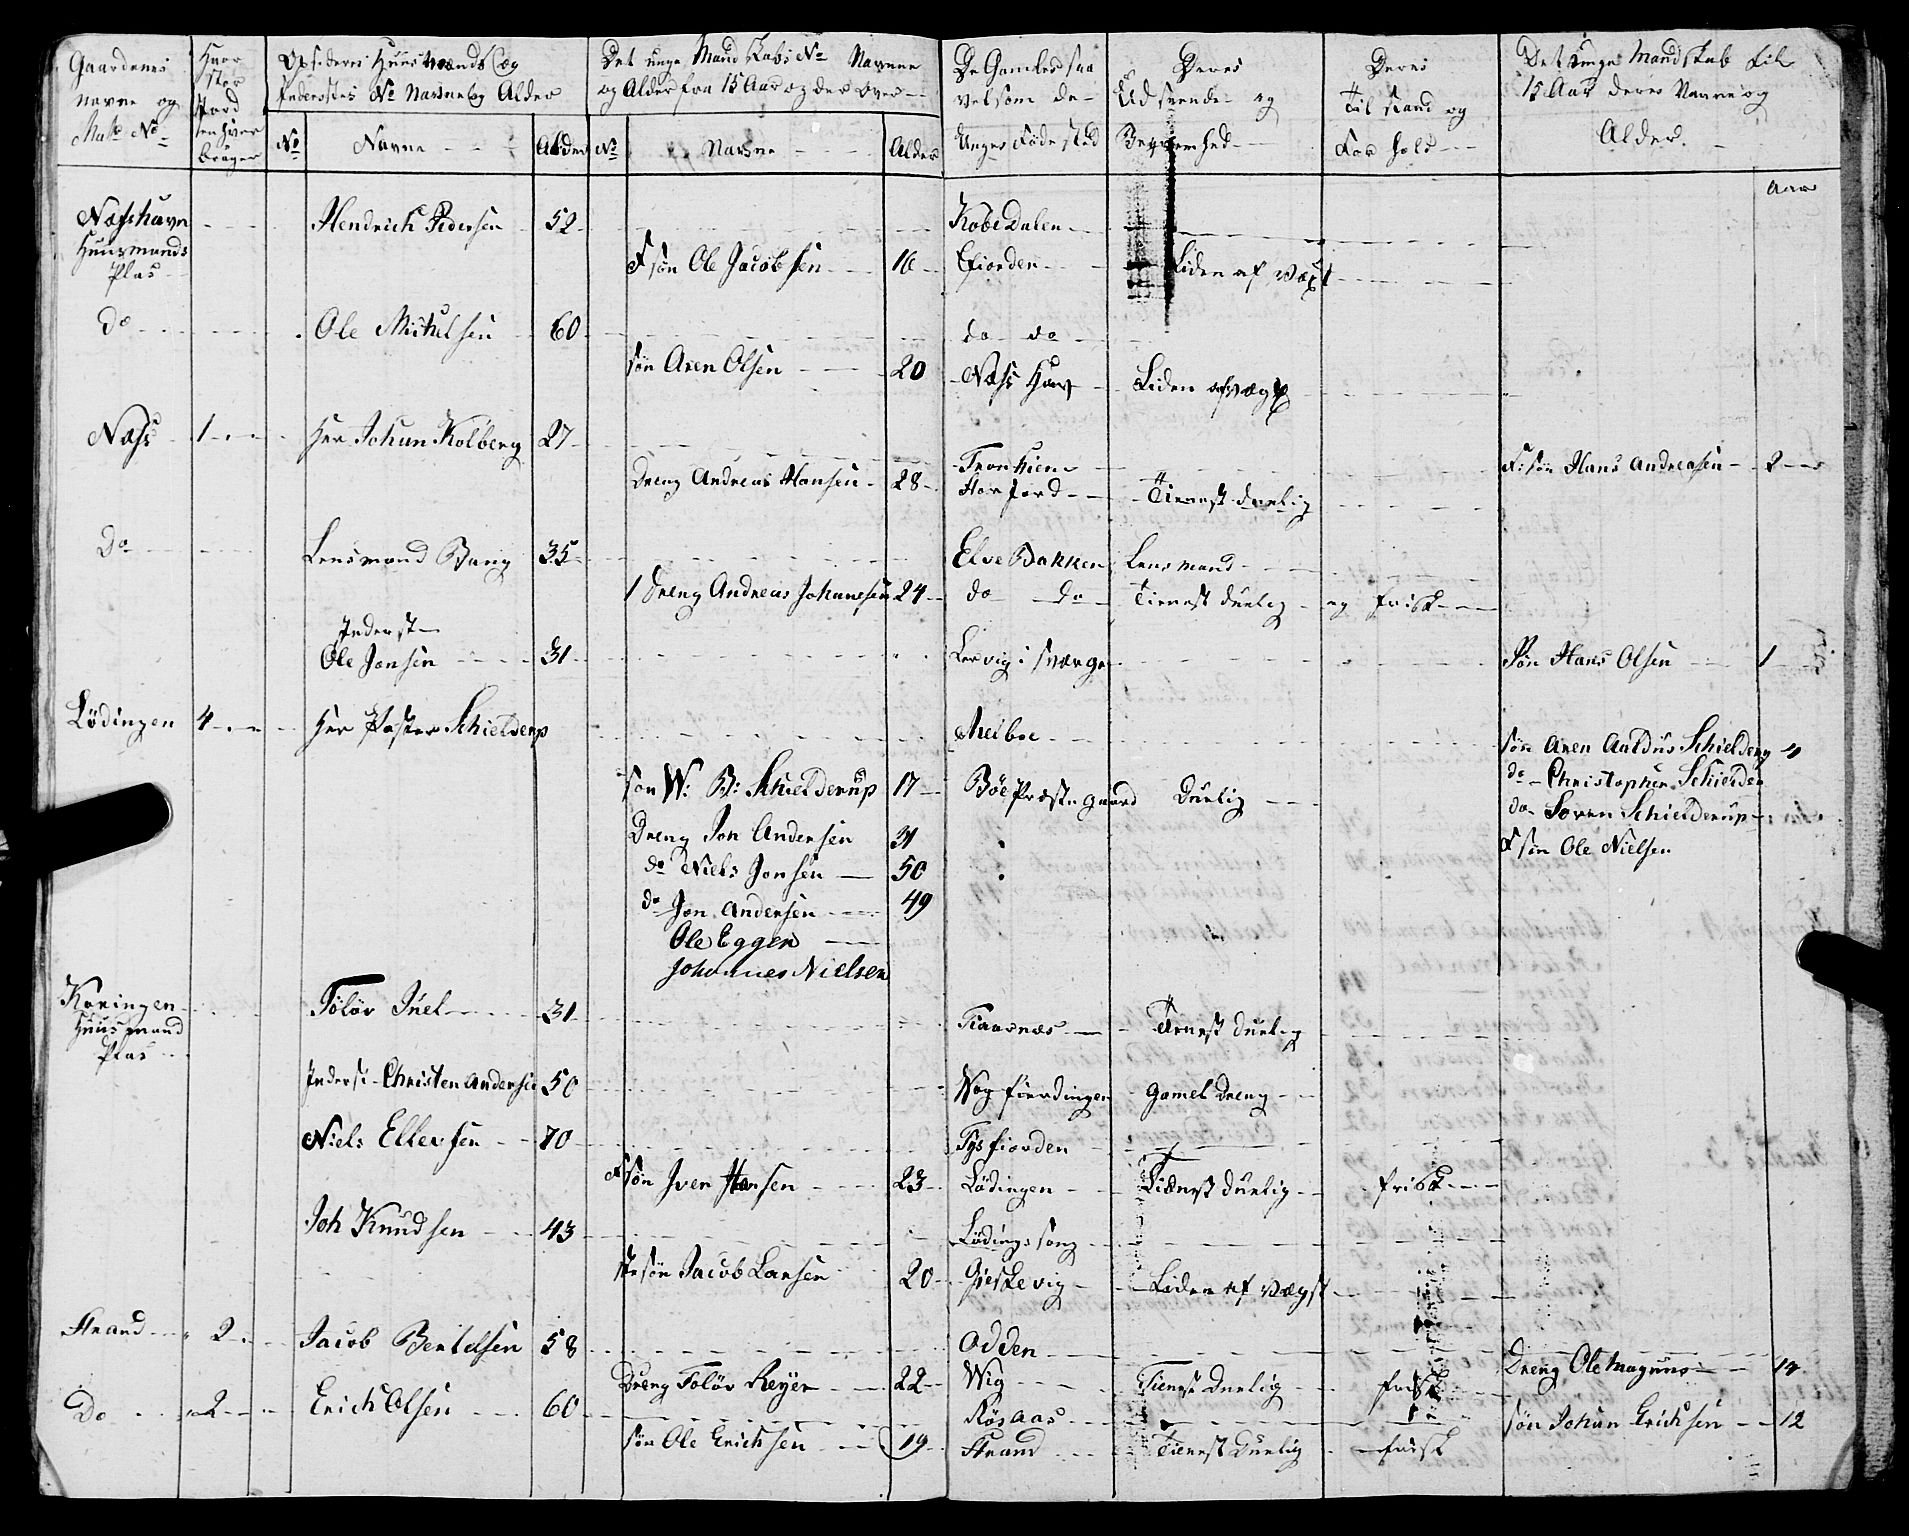 Gaardenes navne og Matr No
Hvor stor Jord en hver bruger
Opsideres Huusmænds og Inderstes No Navne og Alder
Det unge Mandskabs No Navne og Alder fra 15 Aar og der over
De Gamles saa vel som de Unges Føde sted
Deres Udseende og Beqvemhed
Deres Til stand og For hold
Det unge Mandskab til 15 Aar deres Navne og Alder.
No Navne Alder No Navne Alder
Aar
Næshavn Huusmands Plas Hendrich Pedersen 52 Kobedalen
F søn Ole Jacobsen 16 Efiorden Liden af Væxt
do Ole Michelsen 60 do do
søn Aren Olsen 20 Næss Havn Liden af Vægst
Næss 1 Her Johan Kolberg 27 Tronhiem
Dreng Andreas Hansen 28 Harfjord Tienest duelig F: søn Hans Andreasen 2
Do Lensmand Bang 35 Elvebakken Lensmand
1 Dreng Andreas Johansen 24 do do Tienest duelig og frisk
Inderst
Ole Jonsen 31 Lervig i Sværge Søn Hans Olsen 1
Lödingen 4 Her Pastor Schielderup Melboe
søn Aren Aaldus Schielderup 4
søn W: B: Schielderup 17 Böe Præste gaard Duelig do Christopher Schielder
do Soren Schielderup
Dreng Jon Andersen 31
F søn Ole Nielsen
do Niels Jonsen 50
do Jon Andersen 49
Ole Eggen
Johannes Nielsen
Kæringen Huusmand Plas Tölöv Juel 31 Kaarnæs Tienest duelig
Inderst Christen Andersen 50 Wogfiordingen Gamel Dreng
Niels Ellersen 70 Tysfiorden
F søn Iver Hansen 23 Lödingen Tiænst duelig frisk
Joh Knudsen 43 Lödings song
Ste søn Jacob Larsen 20 Gieskevig Liden af Vægst
Strand 2 Jacob Bentelsen 58 Odden
Dreng Tolöv Reyer 22 Wig Tienest Duelig frisk Dreng Ole Magnus 14
Do 2 Erich Olsen 60 Rösaas søn Johan Erichsen 12
søn Ole Erichsen 19 Strand Tienest Duelig frisk